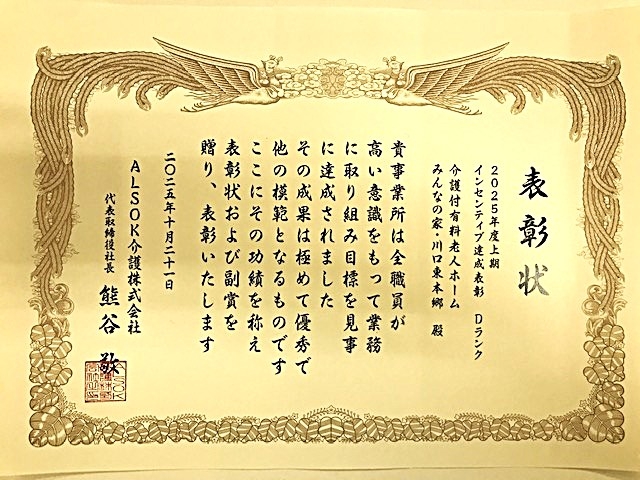 表彰状
2025年度上期
インセンティブ達成表彰 Dランク
介護付有料老人ホーム
みんなの家・川口東本郷 殿
貴事業所は全職員が
高い意識をもって業務
に取り組み目標を見事
に達成されました
その成果は極めて優秀で
他の模範となるものです
ここにその功績を称え
表彰状および副賞を
贈り、表彰いたします
二〇二五年十月二十一日
ALSOK介護株式会社
代表取締役社長 熊谷 敬